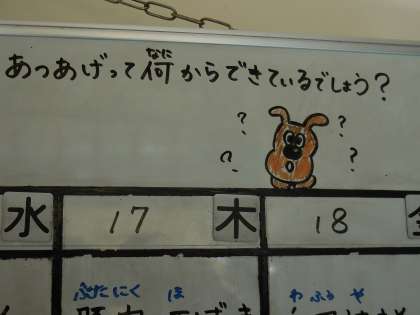 なに
あつあげって何からできているでしょう?
? ?
? ?
水 17 木 18
ぶたにく ほ わふう や